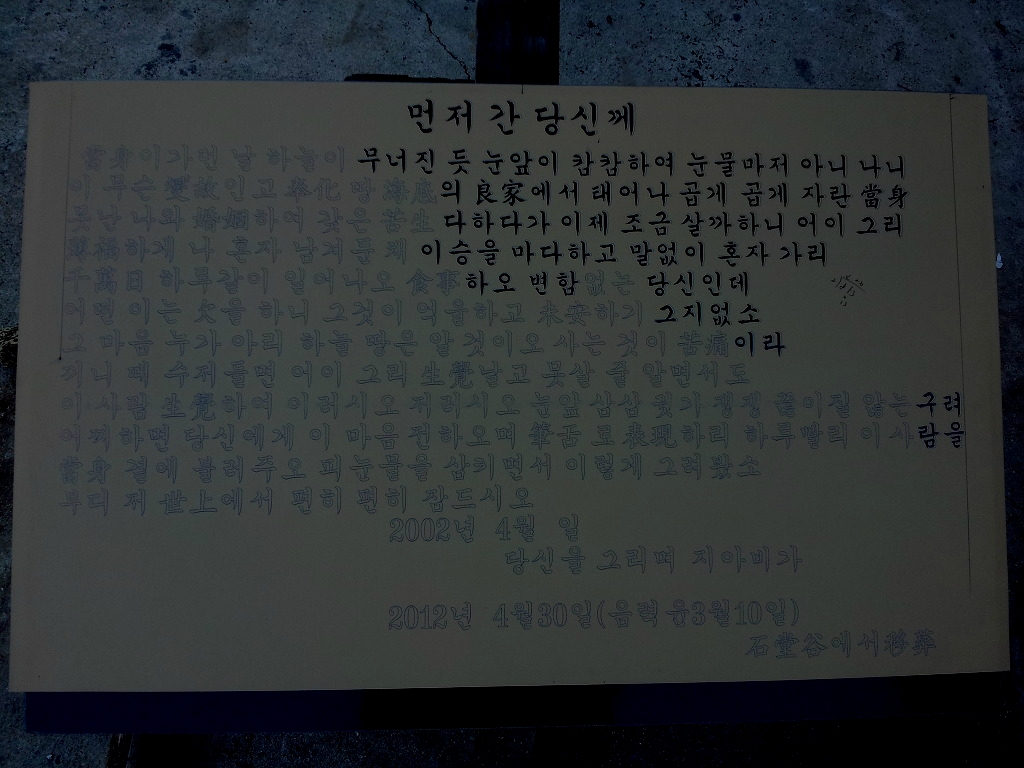 먼저 간 당신께
當身이 가던 날 하늘이 무너진 듯 눈앞이 캄캄하여 눈물마저 아니 나니
이 무슨 變故인고 奉化 땅 海底의 良家에서 태어나 곱게 곱게 자란 當身
못난 나와 婚姻하여 갖은 苦生 다하다가 이제 조금 살까하니 어이 그리
薄福하게 나 혼자 남겨둔 채 이승을 마다하고 말없이 혼자 가리
千萬日 하루같이 일어나오 食事하오 변함없는 당신인데
어떤 이는 欠을 하니 그것이 억울하고 未安하기 그지없소
그 마음 누가 아리 하늘 땅은 알 것이오 사는 것이 苦痛이라
끼니 때 수저 들면 어이 그리 生覺날고 못살 줄 알면서도
이 사람 生覺하여 이러시오 저러시오 눈앞 삼삼 귓가 쟁쟁 끊이질 않는구려
어찌하면 당신에게 이 마음 전하오며 筆舌로 表現하리 하루빨리 이 사람을
當身 곁에 불러주오 피눈물을 삼키면서 이렇게 그려봤소
부디 저 世上에서 편히 편히 잠드시오
2002년 4월 일
당신을 그리며 지아비가
2012년 4월30일(음력 윤3월10일)
石堂谷에서移葬